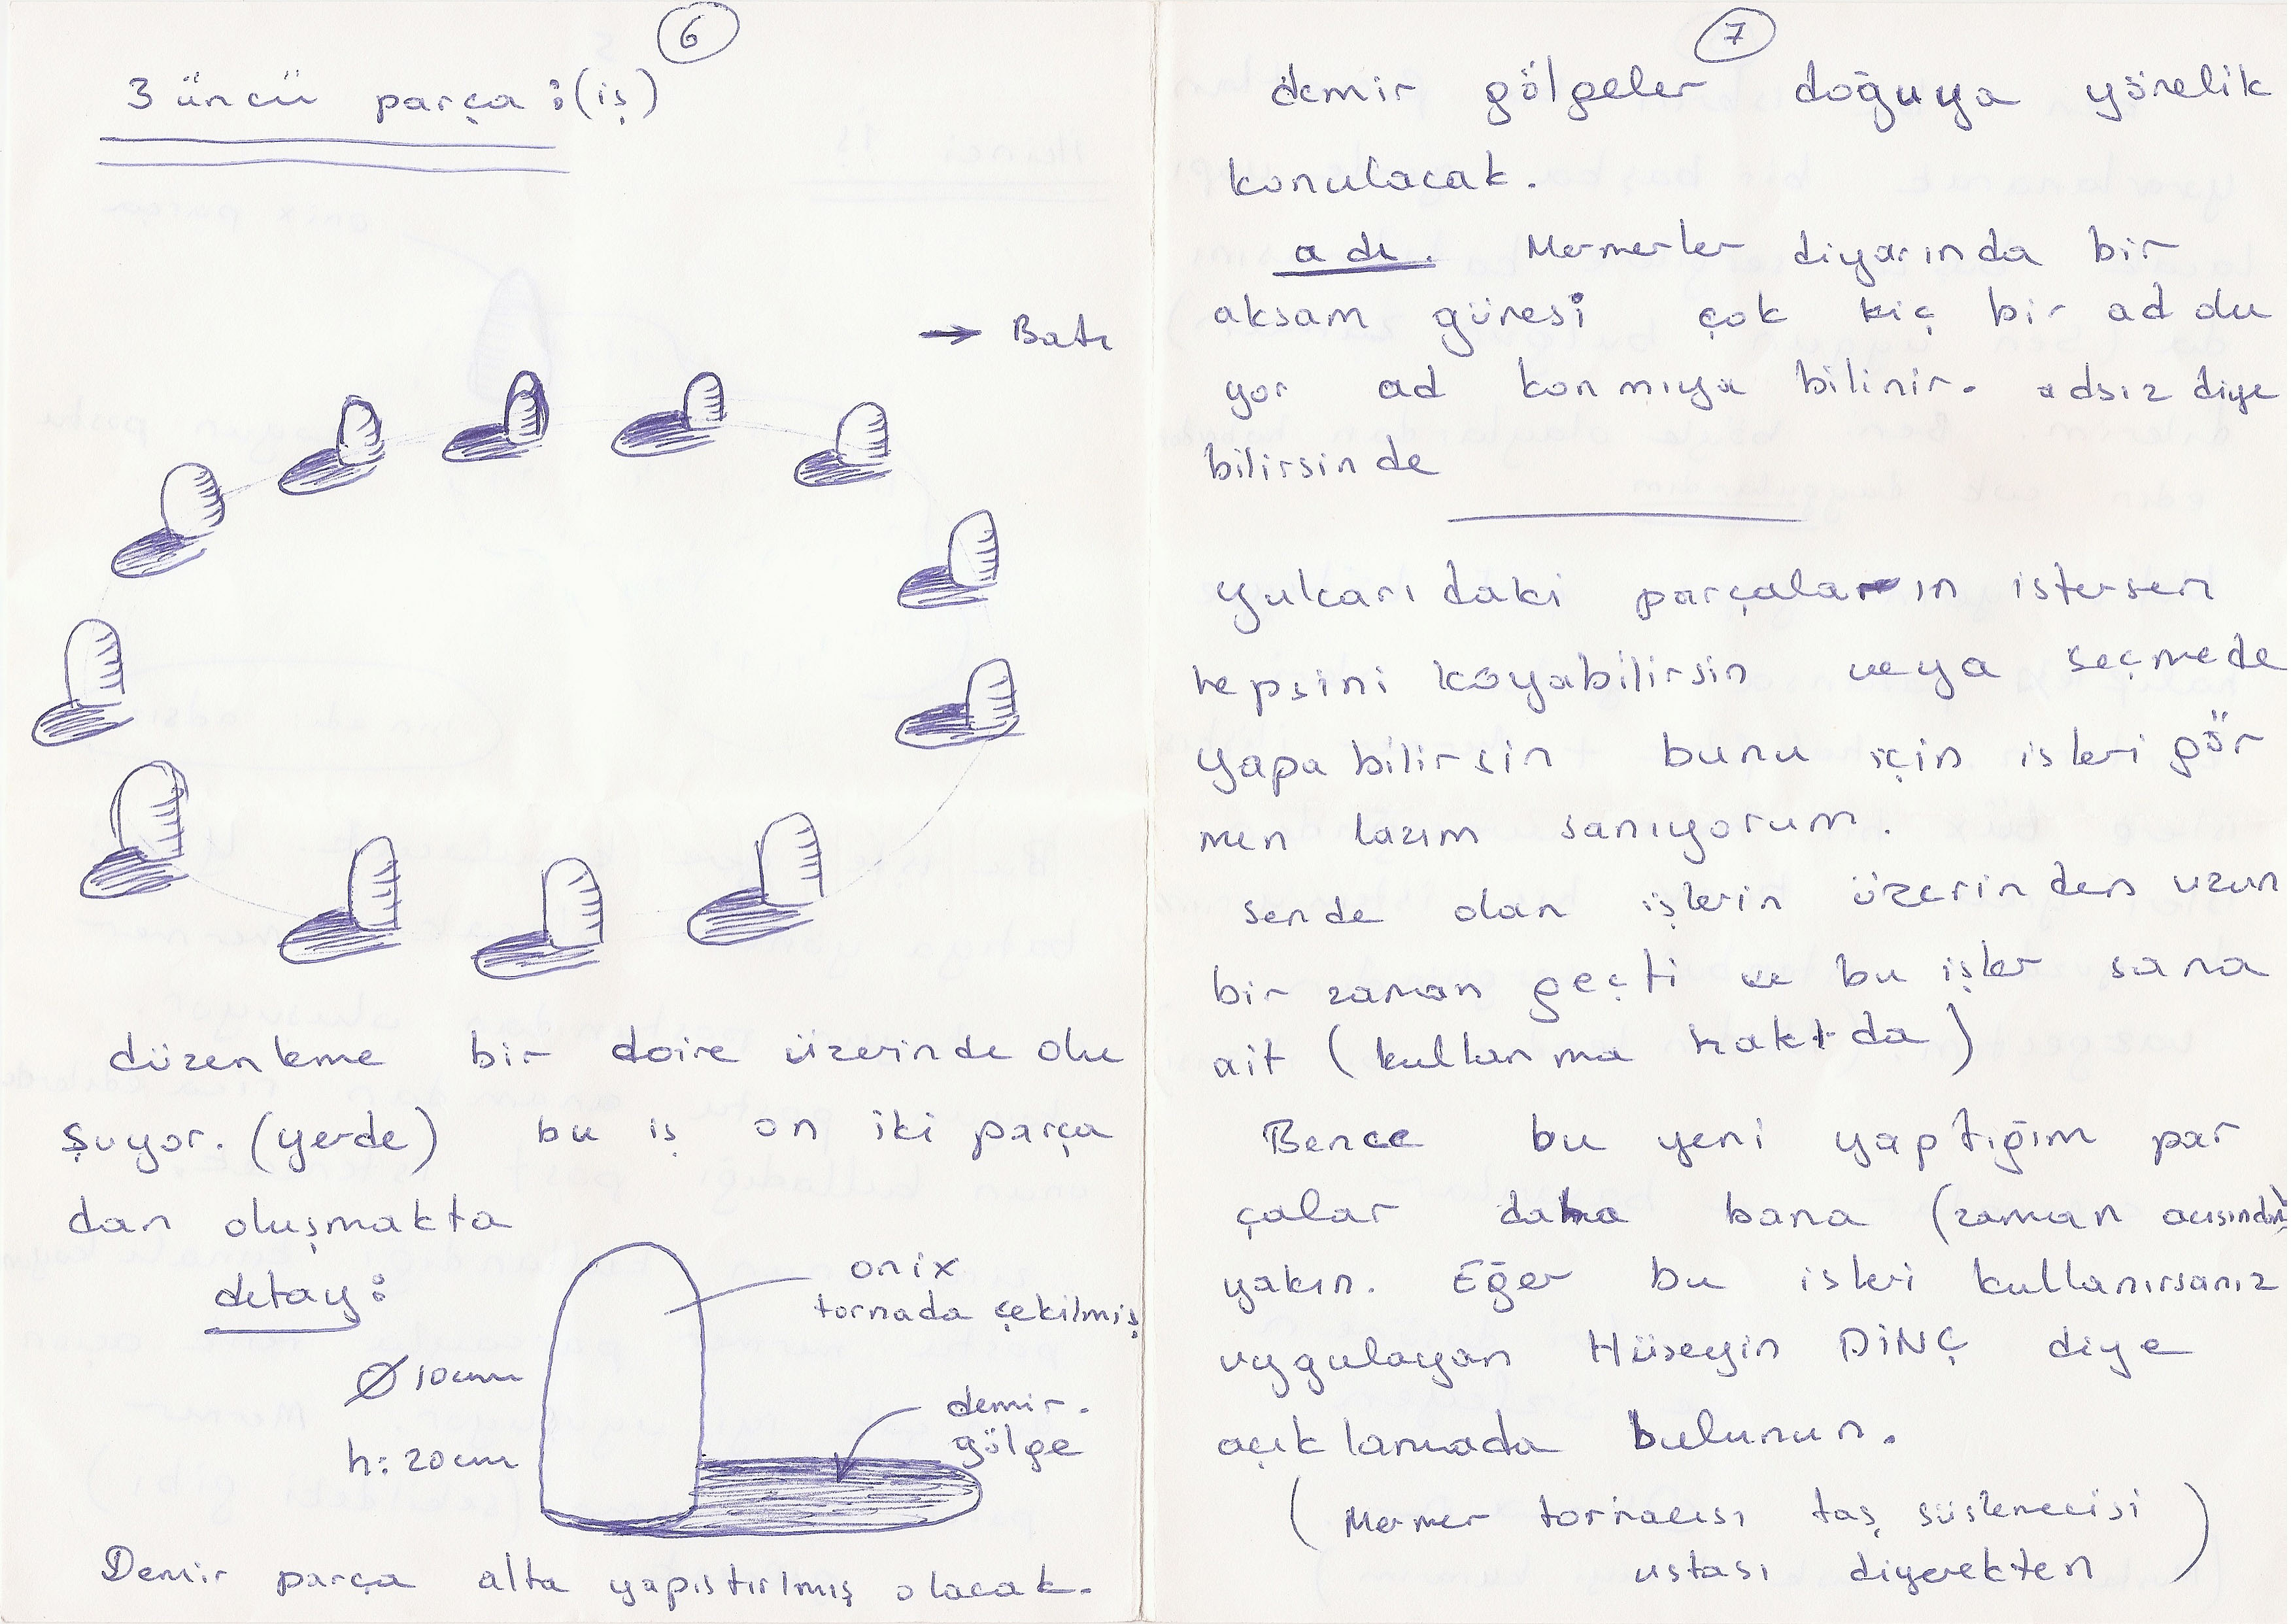 6
3 üncü parça : (iş)
→ Batı
düzenleme bir daire üzerinde olu
şuyor. (yerde) bu iş on iki parça
dan oluşmakta
detay :
onix
tornada çekilmiş
Ø 10cm
h: 20cm
demir.
gölge
Demir parça alta yapıştırlmış olacak.
7
demir gölgeler doğuya yönelik
konulacak.
adı. Mermerler diyarında bir
aksam günesi çok kiç bir ad du
yor ad konmıya bilinir. adsız diye
bilirsinde
yukarıdaki parçaların istersen
hepsini koyabilirsin veya seçmede
yapabilirsin bunu için isleri gör
men lazım sanıyorum.
sende olan işlerin üzerinden uzun
bir zaman geçti ve bu işler sana
ait (kullanma hakkıda)
Bence bu yeni yaptığım par
çalar daha bana (zaman acısından)
yakın. Eğer bu isleri kullanırsanız
uygulayan Hüseyin DİNÇ diye
açıklamada bulunun.
(Mermer tornacısı taş süslemecisi
ustası diyerekten)